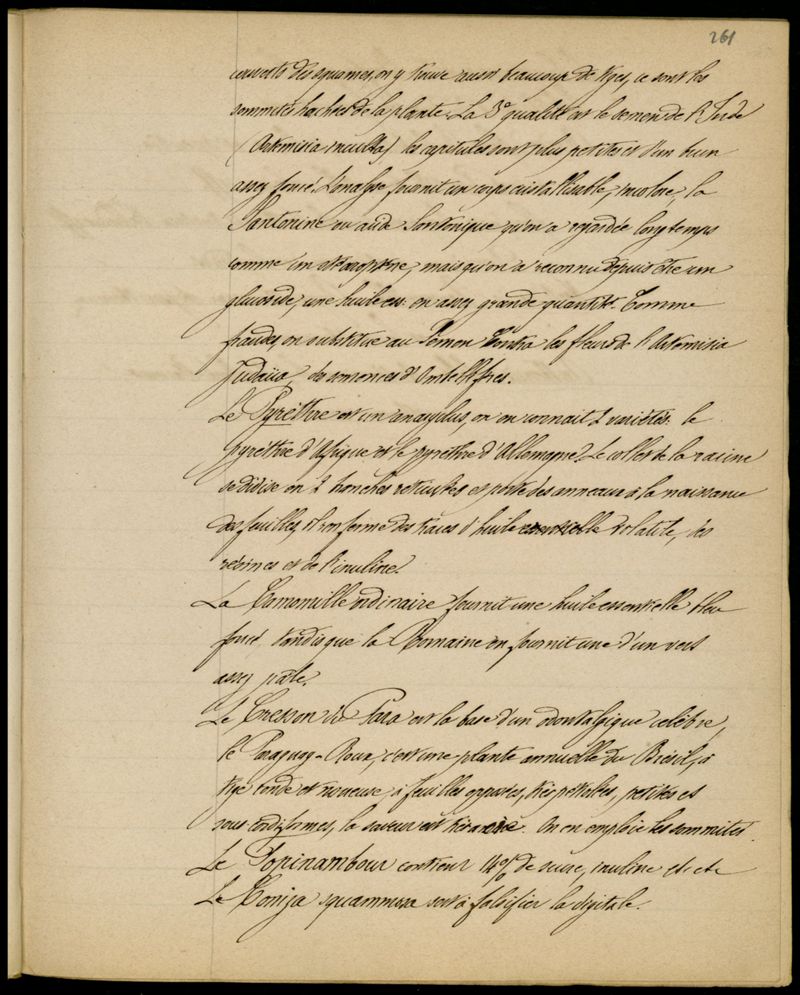 261
couverts des squames, on y trouve aussi beaucoup de tiges, ce sont les
sommités hachées de la plante. La 3e qualité est le semen de l'Inde
(Artemisia inculta) les capitules sont plus petits et d'un brun
assez foncé. L'analyse fournit un corps cristallisable, incolore, la
Santonine ou acide Santonique qu'on a regardée longtemps
comme un stéaroptène, mais qu'on a reconnu depuis être un
glucoside, une huile ess. en assez grande quantité. Comme
fraudes on substitue au Semen Contra les fleurs de l'Artemisia
Judaïca, des semences d'Ombellifères.
Le Pyrèthre est un anacyclus, on en connait 2 variétés. le
pyrèthre d'Afrique et le pyrèthre d'Allemagne. Le collet de la racine
se divise en 2 branches et porte des anneaux à la naissance
des feuilles, il renferme des traces d'huile essentielle volatile, des
résines et de l'inuline.
La Camomille ordinaire fournit une huile essentielle bleu
foncé, tandis que la Romaine en fournit une d'un vert
assez pâle.
Le Cresson de Para est la base d'un odontalgique célèbre,
le Paraguay-Roux, c'est une plante annuelle du Brésil, à
tige ronde et rameuse, à feuilles opposées, pétiolées, petites et
sous cordiformes, la saveur est très âcre. On en emploie les sommités.
Le Topinambour contient 14% de sucre, inuline etc etc
Le Coniza squammosa sert à falsifier la digitale.